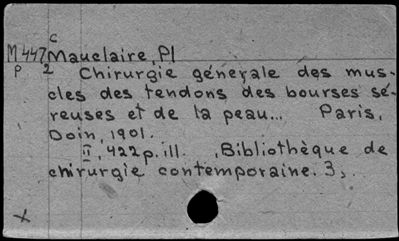 C
M447 Mauclaire, Pl
P 2 Chirurgie génerale des mus-
cles des tendons des bourses sé-
reuses et de la peau... Paris,
Doin, 1901.
II, 422p. ill. (Bibliothèque de
chirurgie contemporaine. 3)
x